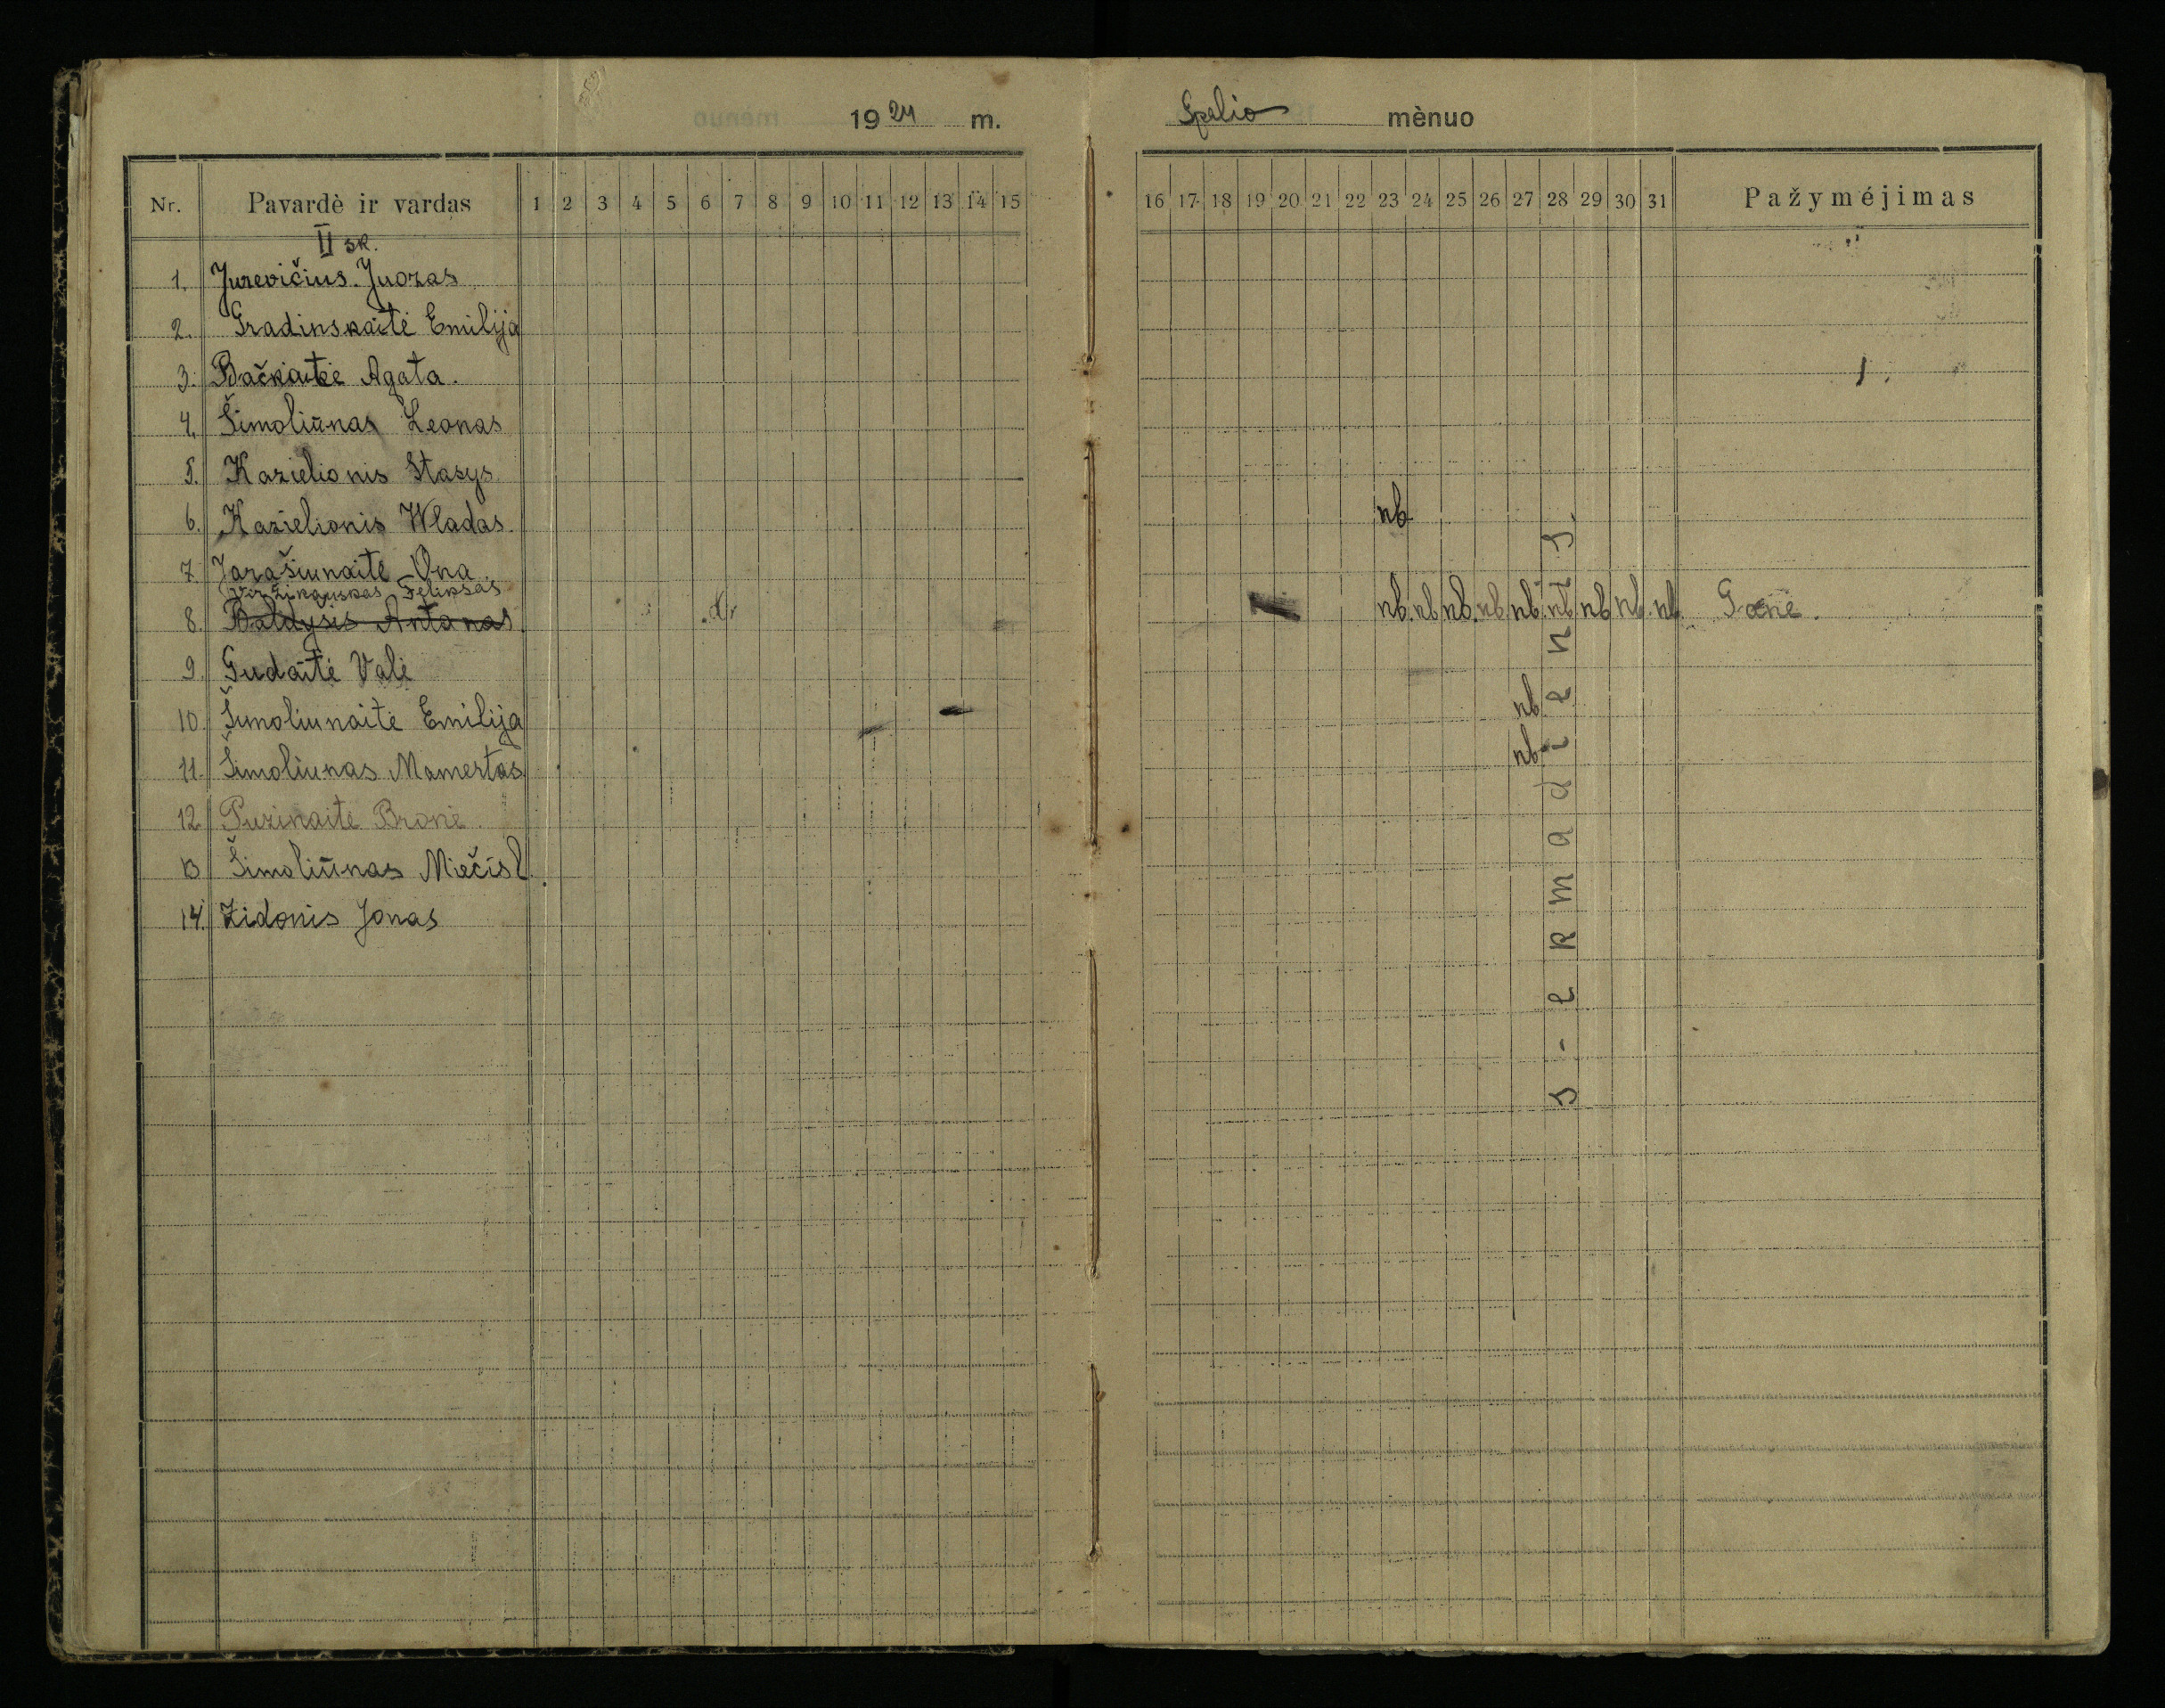 1924 m. Spalio mėnuo
Nr. Pavardė ir vardas 1 2 3 4 5 6 7 8 9 10 11 12 13 14 15 16 17 18 19 20 21 22 23 24 25 26 27 28 29 30 31 Pažymėjimas
II sk.
1. Jurevičius Juozas
2. Gradinskaitė Emilija
3. Bačkaitė Agata.
4. Šimoliūnas Leonas
5. Kazielionis Stasys
6. Kazielionis Wladas. nb
7. Jarašiunaitė Ona
Viržikauskas Feliksas
8. Baldyšis Antanas nb. nb nb. nb nb. nb nb nb. nb
9. Gudaitė Valė
10. Šimoliunaitė Emilija nb
11. Šimoliunas Mamertas nb
12. Puzinaitė Bronė.
13 Šimoliūnas Miečisl.
14. Zidonis Jonas
S-ekmadienis